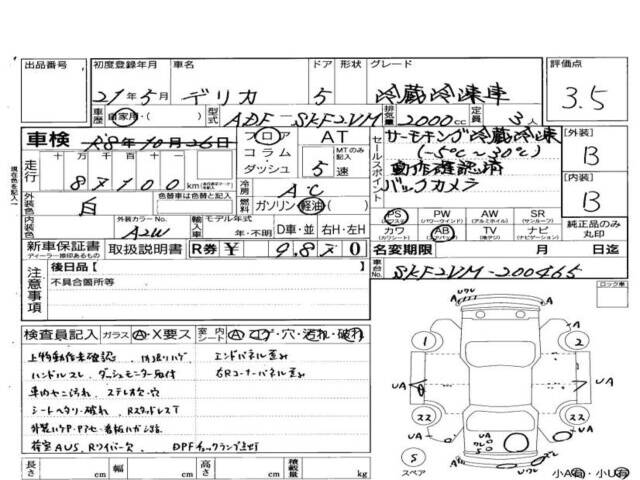 出品番号 初度登録年月 車名 ドア 形状 グレード 評価点
21年5月 デリカ 5 冷蔵冷凍車 3.5
車歴 自家用・( ) 型式 ADF-SKF2VM 排気量 2000cc 定員 3人
車検 R8年10月26日 フロア AT
コラム・ダッシュ 5速 MTのみ記入
セールスポイント サーモキング冷蔵冷凍
(-5℃~30℃)
動作確認済
バックカメラ
外装 B
内装 B
走行 十万 万 千 百 十
87100 km
冷房 AC
外装色 白 色替車は色替と記入
燃料 ガソリン 軽油・( )
内装色 外装カラーNo. A2W
輸入車 モデル年式 年・不明 D車・並 右H・左H
PS PW AW SR
(パワステ) (パワーウインド) (アルミホイル) (サンルーフ)
カワ AB TV ナビ
(カワシート) (エアバック) (地デジ) (ナビゲーション)
純正品のみ丸印
新車保証書 取扱説明書 R券 ¥ 9,870
ディーラー捺印あるもの
名変期限 月 日迄
注意事項 後日品【 】
不具合箇所等
車台No. SKF2VM-200465
ロック車
検査員記入 ガラス A・X要ス 室内シート A・コゲ・穴・汚れ・破れ
上物動作未確認 エンドパネル歪み
ハンドルスレ、ダッシュモニター取付 右Rコーナーパネル歪み
車内ヤニ汚れ ステレオ欠・穴
シートヘタリ・破れ RスタッドレスT
荷室AUS、Rワイパー欠 DPFチェックランプ点灯
長さ cm 幅 cm 高さ cm 積載量 kg
ワレ
UA
A
1
2
UA
UA
22
22
UA
UA
S
スペア
小A有・小U有